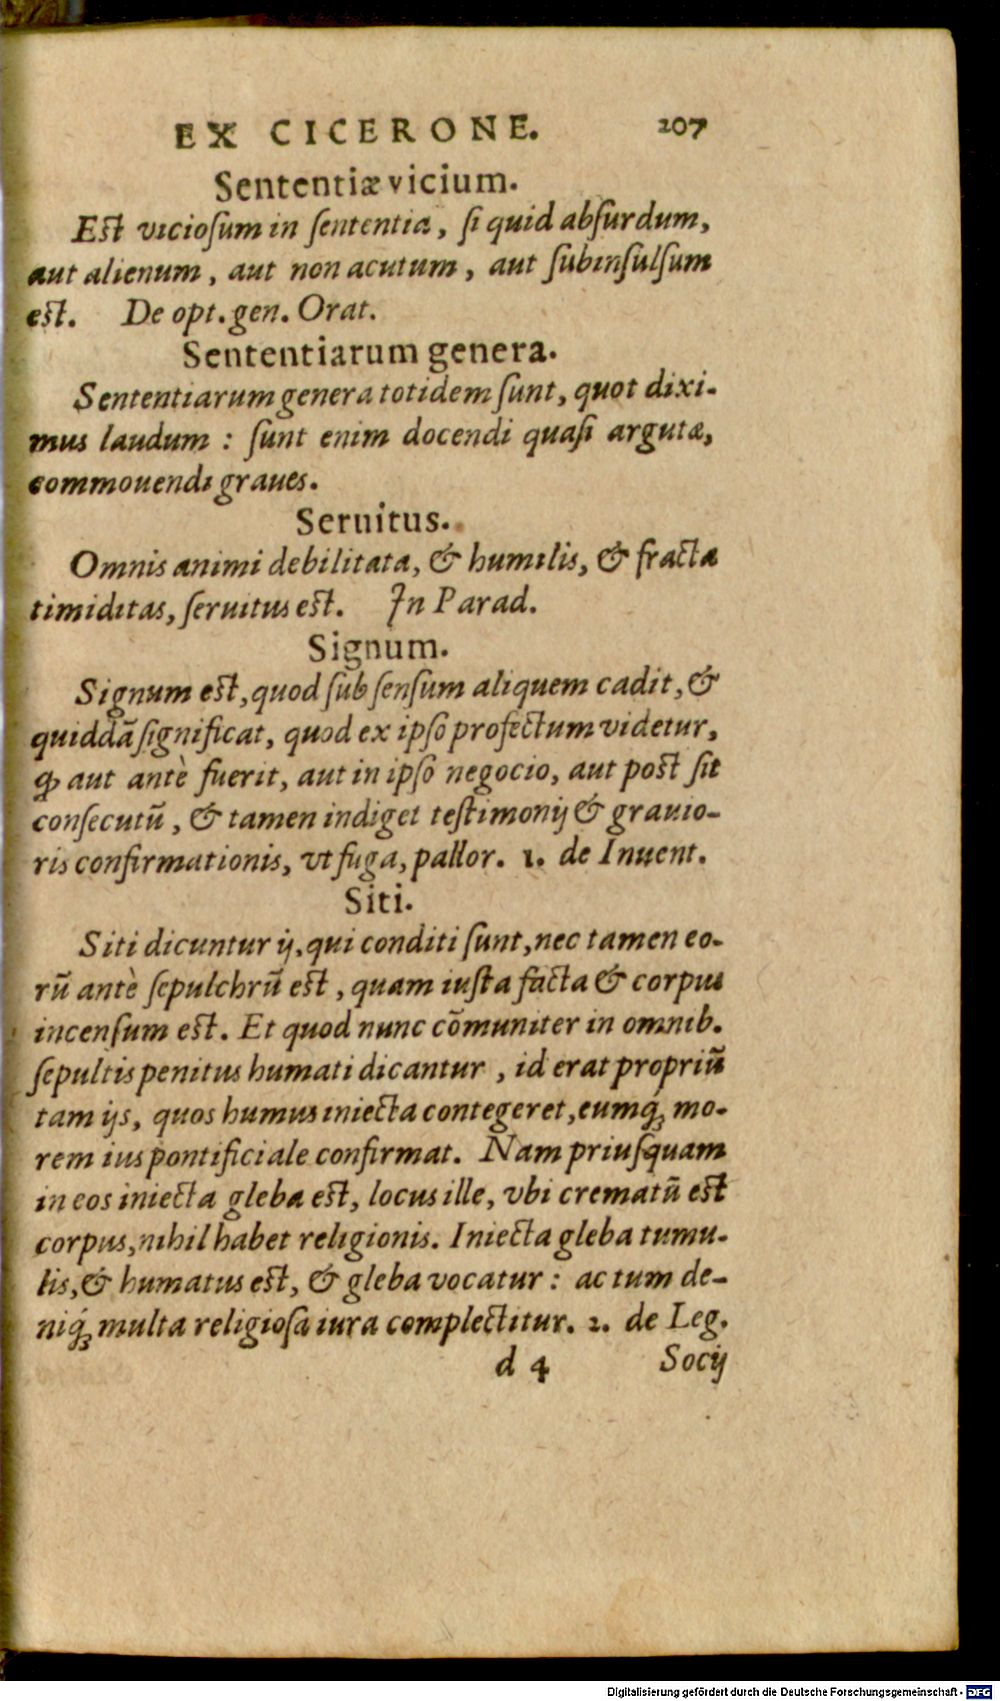 EX CICERONE. 207
Sententiæ vicium.
Est viciosum in sententia, si quid absurdum,
aut alienum, aut non acutum, aut subinsulsum
est. De opt. gen. Orat.
Sententiarum genera.
Sententiarum genera totidem sunt, quot dixi-
mus laudum : sunt enim docendi quasi argutæ,
commouendi graues.
Seruitus.
Omnis animi debilitata, & humilis, & fracta
timiditas, seruitus est. In Parad.
Signum.
Signum est, quod sub sensum aliquem cadit, &
quiddā significat, quod ex ipso profectum videtur,
ꝙ aut antè fuerit, aut in ipso negocio, aut post sit
consecutū, & tamen indiget testimonij & grauio-
ris confirmationis, vt fuga, pallor. 1. de Inuent.
Siti.
Siti dicuntur ij, qui conditi sunt, nec tamen eo-
rū antè sepulchrū est, quam iusta facta & corpus
incensum est. Et quod nunc cōmuniter in omnib.
sepultis penitus humati dicantur, id erat propriū
tam ijs, quos humus iniecta contegeret, eumq́; mo-
rem ius pontificiale confirmat. Nam priusquam
in eos iniecta gleba est, locus ille, vbi crematū est
corpus, nihil habet religionis. Iniecta gleba tumu-
lis, & humatus est, & gleba vocatur : ac tum de-
niq́; multa religiosa iura complectitur. 2. de Leg.
d 4 Socij
Digitalisierung gefördert durch die Deutsche Forschungsgemeinschaft - DFG